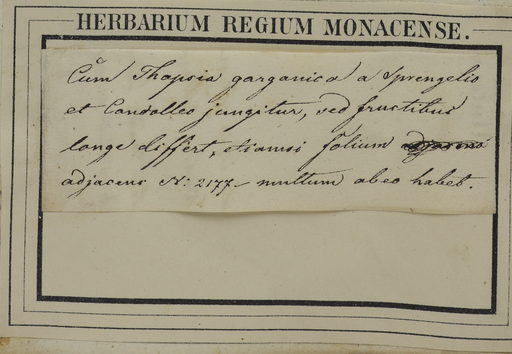 HERBARIUM REGIUM MONACENSE.
Cum Thapsia garganica a Sprengelio
et Candolleo jungitur, sed fructibus
longe differt, etiamsi folium
adjacens N: 2177 multum ab eo habet.